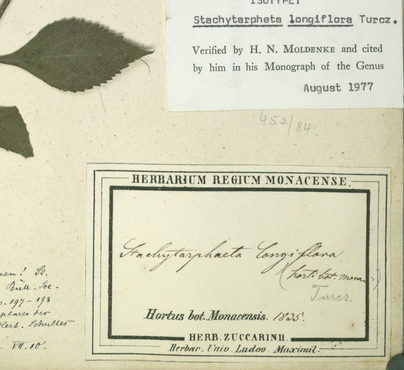 ISOTYPE:
Stachytarpheta longiflora Turcz.
Verified by H. N. MOLDENKE and cited
by him in his Monograph of the Genus
August 1977
452/84.
HERBARIUM REGIUM MONACENSE.
Stachytarphaeta longiflora
(horti bot. mona.)
Turcz.
Hortus bot. Monacensis. 1835.
HERB. ZUCCARINII.
Herbar. Univ. Ludov. Maximil.
men! St.
Bull. Soc.
p. 197-198
Herb. Schultes
VII. 10.